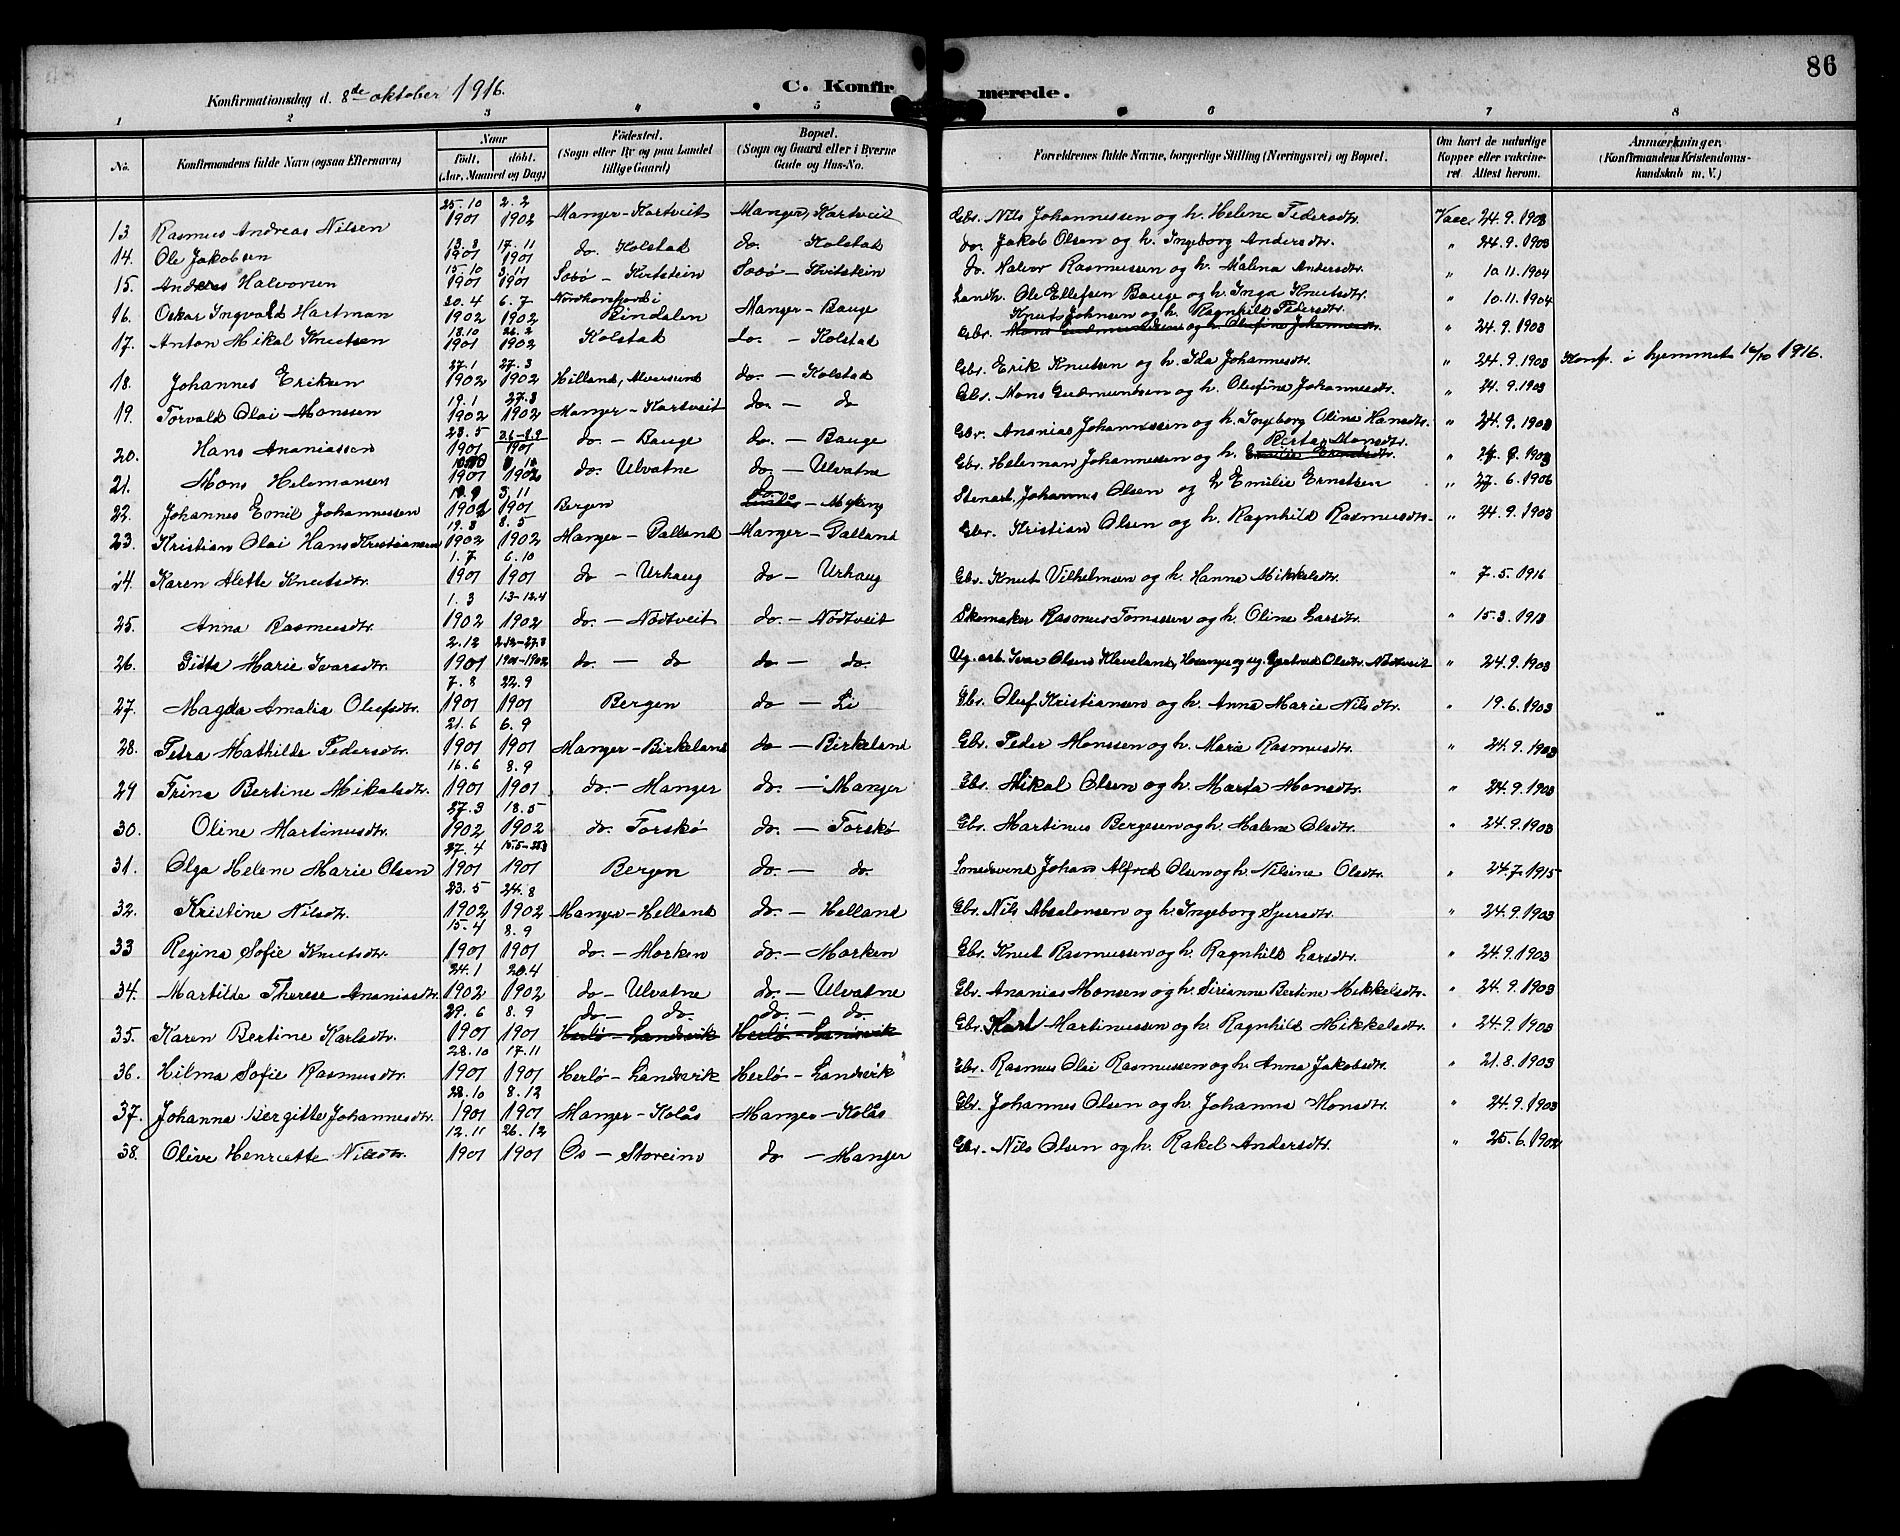 86
Konfirmationsdag d. 8de oktober 1916.
C. Konfirmerede.
1 2 3 4 5 6 7 8
No.
Konfirmandens fulde Navn (ogsaa Efternavn)
Naar
født. døbt.
(Aar, Maaned og Dag)
Fødested.
(Sogn eller By og paa Landet
tillige Gaard)
Bopæl.
(Sogn og Gaard eller i Byerne
Gade og Hus-No.
Forældrenes fulde Navne, borgerlige Stilling (Næringsvei) og Bopæl.
Om havt de naturlige
Kopper eller vakcine-
ret. Attest herom.
Anmærkninger.
(Konfirmandens Kristendoms-
kundskab m. V.)
13 Rasmus Andreas Nilsen 25.10 1901 2.2 1902 Manger - Kartveit Manger, Kartveit Gbr. Nils Johannessen og h. Helene Pedersdtr. Vacc. 24.9.1903
14. Ole Jakobsen 13.8 1901 17.11 1901 do. Kolstad do. Kolstad do. Jakob Olsen og h. Ingeborg Andersdtr. " 24.9.1903
15. Anders Halvorsen 15.10 1901 3.11 1901 Sæbø - Kvitstein Sæbø - Kvitstein do. Halvor Rasmussen og h. Malena Andersdtr. " 10.11.1904
16. Oskar Ingvald Hartman 20.4 1902 6.7 1902 Bindalen Manger - Bauge Landh. Ole Ellefsen Bauge og h. Inga Knutsdtr. " 10.11.1904
17. Anton Mikal Knutsen 18.10 1901 26.2 1902 Kolstad do. - Kolstad Gbr. Knut Johnsen og h. Ragnhild Pedersdtr. Mons Gudmundsen og h. Olufine Johannesdtr. " 24.9.1903
18. Johannes Eriksen 27.1 1902 27.3 1902 Hilland, Alversund do. - Kolstad Gbr. Erik Knutsen og h. Ida Johannesdtr. " 24.9.1903 Konf. i hjemmet 12/10 1916.
19. Torvald Olai Monssen 19.1 1902 27.3 1902 Manger - Kartveit do. - do Gbr. Mons Gudmundsen og h. Olufine Johannesdtr. " 24.9.1903
20. Hans Ananiassen 23.5 1901 2.6-8.9 1901 do. - Bauge do. - Bauge Gbr. Ananias Johannessen og h. Ingeborg Oline Hansdtr. " 24.9.1903
21. Mons Helemansen 1901 1902 do. Ulvatne do. - Ulvatne Gbr. Heleman Johannessen og h. Berta Monsdtr. Emilie Ernstsdtr. " 24.9.1903
22. Johannes Emil Johannessen 19.9 1901 3.11 1901 Bergen do. - Myking Stenarb. Johannes Olsen og h Emilie Ernstsen " 27.6.1906
23. Kristian Olai Hans Kristiansen 19.3 1902 8.5 1902 Manger - Toska Gbr. Kristian Olsen og h. Ragnhild Rasmusdtr. " 24.9.1903
24. Karen Alette Knutsdtr. 1.7 1901 6.10 1901 do - Urhaug do - Urhaug Gbr. Knut Vilhelmsen og h. Hanna Mikkelsdtr. " 7.5.1916
25. Anna Rasmusdtr. 1.3 1902 13-12.4 1902 do. - Nødtveit do. - Nødtveit Skomaker Rasmus Tomassen og h. Oline Larsdtr. " 15.3.1913
26. Gitte Marie Ivarsdtr. 2.12 1901 2.12-27.3 1901-1902 do. - do do. - do. Ug. arb. Ivar Olsen Kleveland, Hauge og ug. Gjertrud Olsdtr. Nødtveit " 24.9.1903
27. Magda Amalia Olufsdtr. 7.8 1901 22.9 1901 Bergen do - Li Gbr. Oluf Kristiansen og h. Anne Marie Nilsdtr. " 19.6.1903
28. Petra Mathilde Pedersdtr. 21.6 1901 6.9 1901 Manger - Birkeland do - Birkeland Gbr. Peder Monssen og h. Marie Rasmusdtr. " 24.9.1903
29 Trine Bertine Mikalsdtr. 16.6 1901 8.9 1901 do. - Manger do. - Manger Gbr. Mikal Olsen og h. Marta Monsdtr. " 24.9.1903
30. Oline Martinusdtr. 27.3 1902 18.5 1902 do. Torskø do. - Torskø Gbr. Martinus Bergesen og h. Malene Olsdtr. " 24.9.1903
31. Olga Helene Marie Olsen 27.4 1901 1901 Bergen do. - do. Smedsvend Johan Alfred Olsen og h. Nilsine Olsdtr. " 24.7.1915
32. Kristine Nilsdtr. 23.5 1902 24.8 1902 Manger - Helland do. - Helland Gbr. Nils Absalonsen og h. Ingeborg Sjursdtr. " 24.9.1903
33 Regina Sofie Knutsdtr. 15.4 1901 8.9 1901 do. - Morken do. - Morken Gbr. Knut Rasmussen og h. Ragnhild Larsdtr. " 24.9.1903
34. Martilde Therese Ananiasdtr. 24.1 1902 20.4 1902 do - Ulvatne do. - Ulvatne Gbr. Ananias Monsen og h. Sirianne Bertine Mikkelsdtr. " 24.9.1903
35. Karen Bertine Karlsdtr. 29.6 1901 8.9 1901 do - do. Herlø - Landsvik do. - do. Herlø - Landsvik Gbr. Karl Martinussen og h. Ragnhild Mikkelsdtr. " 24.9.1903
36. Hilma Sofie Rasmusdtr. 28.10 1901 17.11 1901 Herlø - Landsvik Herlø - Landsvik Gbr. Rasmus Olai Rasmussen og h. Anna Jakobsdtr. " 21.8.1903
37. Johanna Bergitte Johannesdtr. 22.10 1901 8.12 1901 Manger - Kolås Manger - Kolås Gbr. Johannes Olsen og h. Johanna Monsdtr. " 24.9.1903
38. Olive Henriette Nilsdtr. 12.11 1901 26.12 1901 Os - Storeino do - Manger Gbr. Nils Olsen og h. Rakel Andersdtr. " 25.6.1902